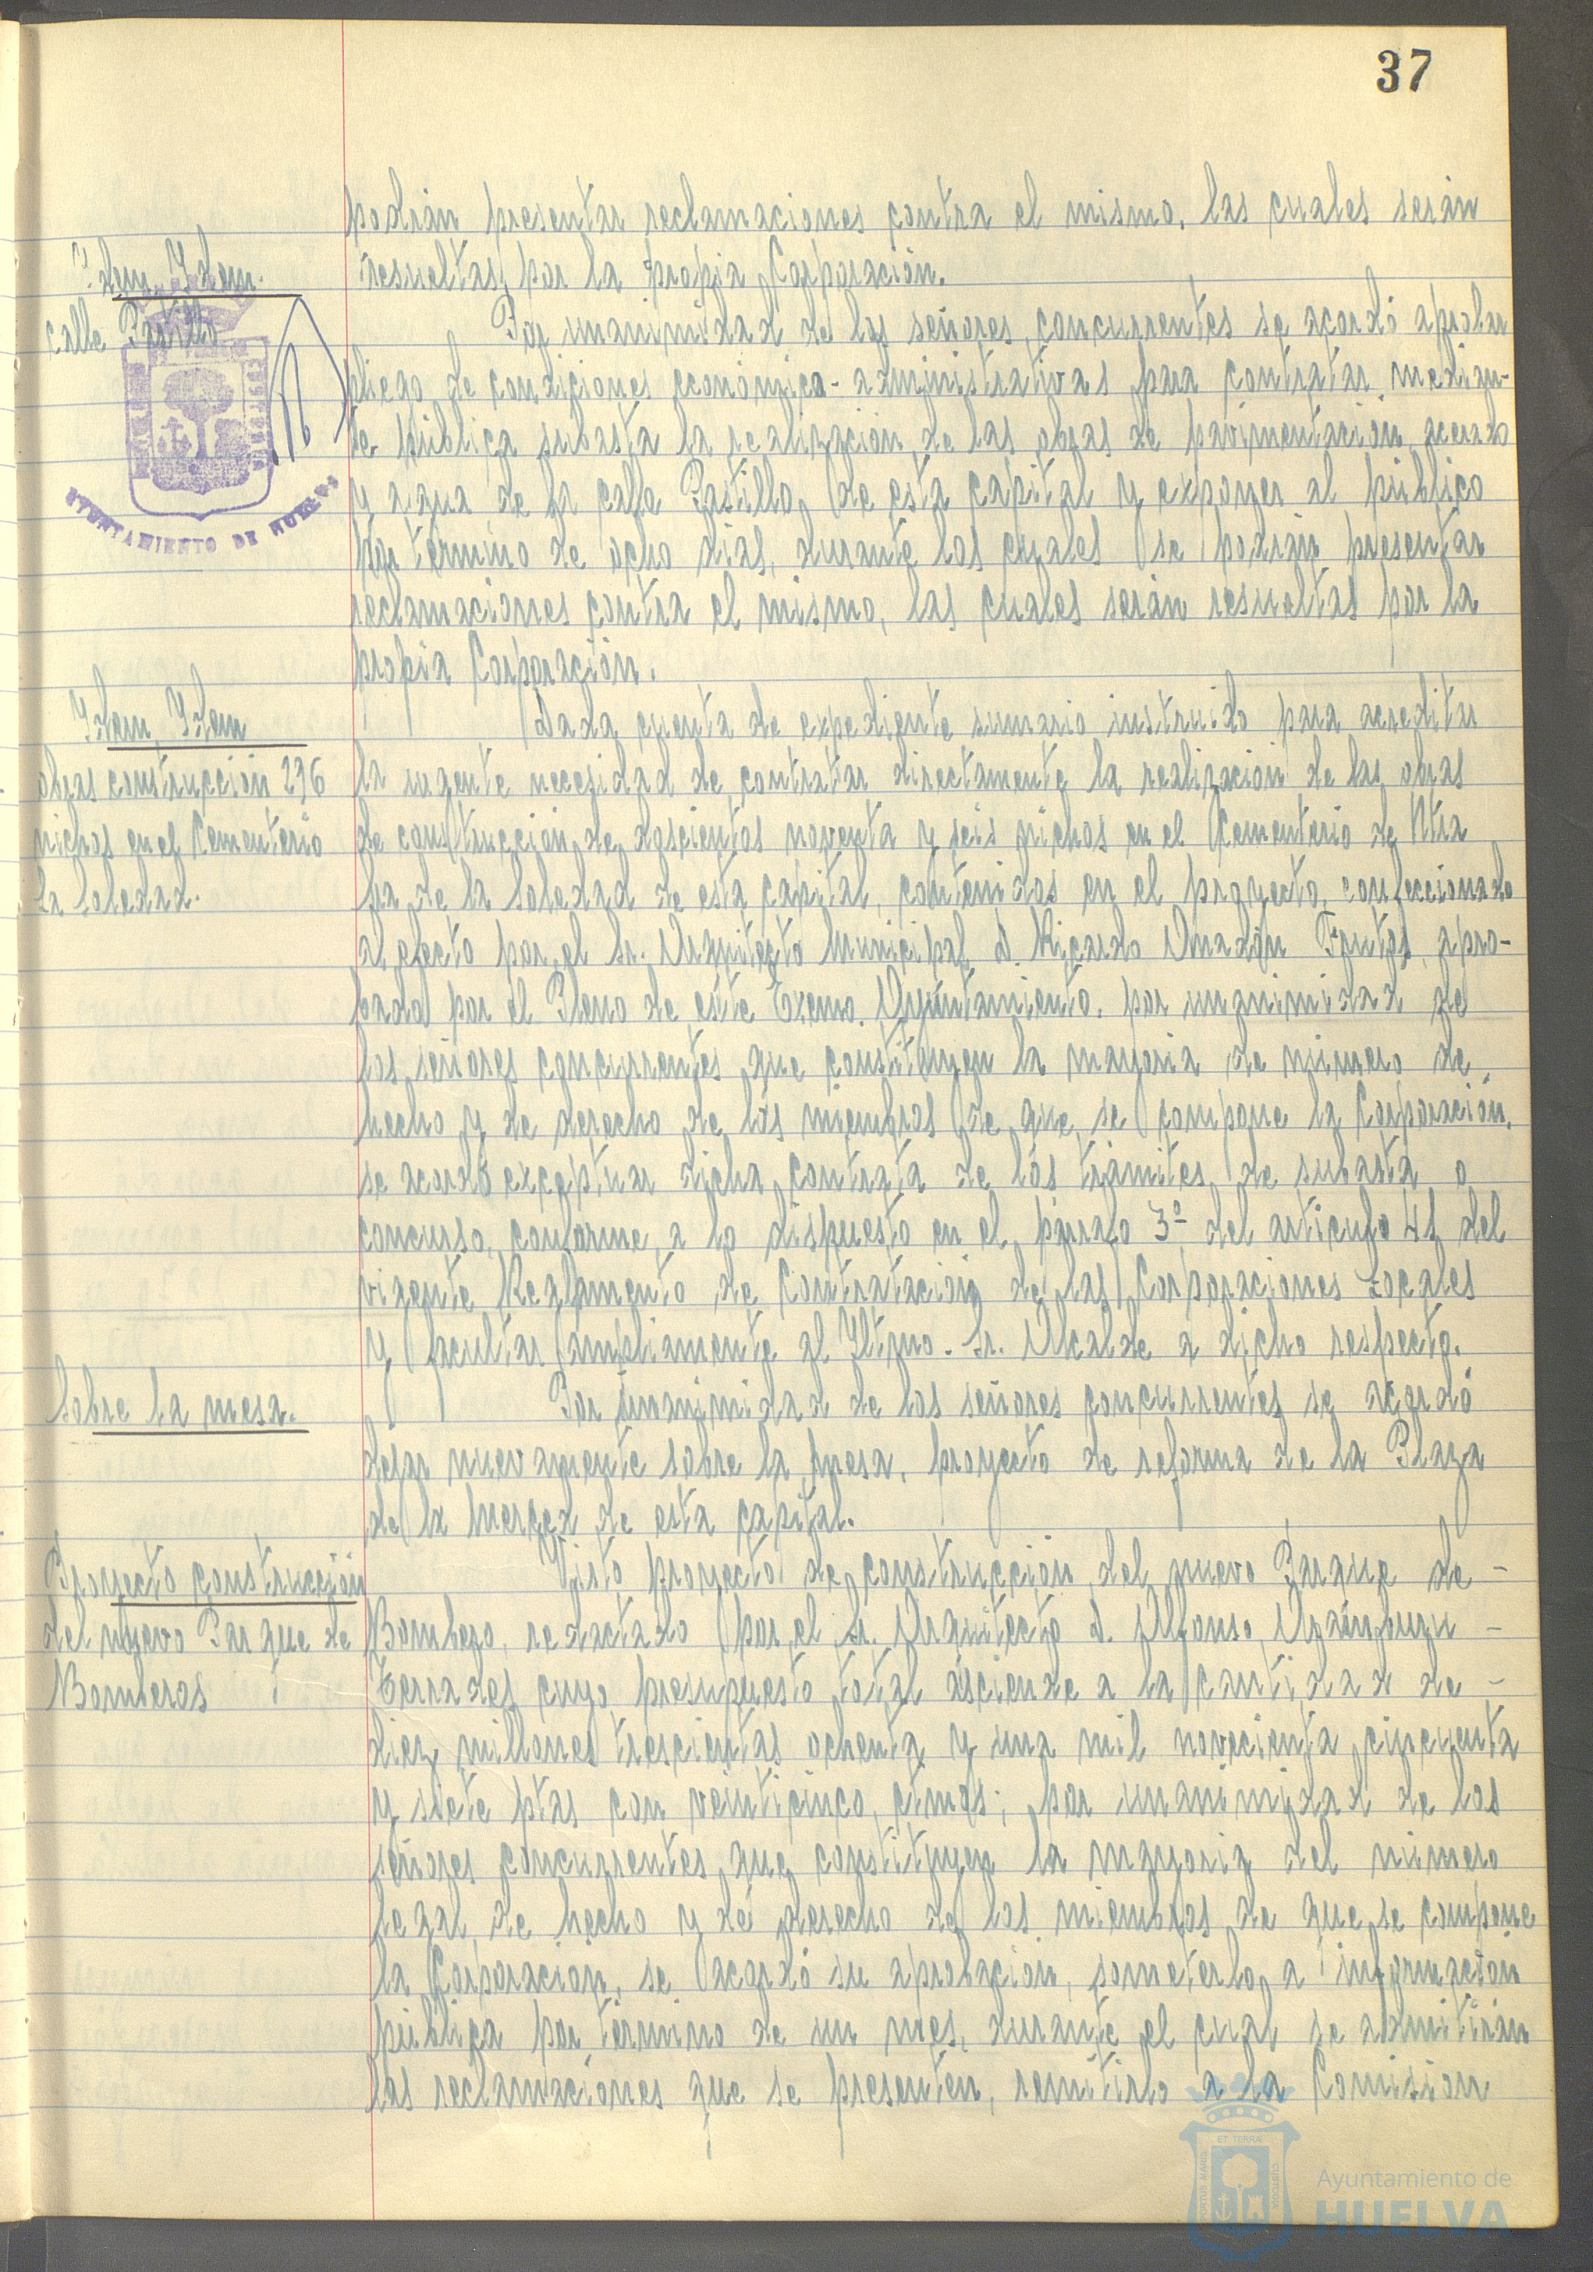 37
podrán presentar reclamaciones contra el mismo, las cuales serán
resueltas por la propia Corporación.
Idem, Idem.
calle Pastillo
Por unanimidad de los señores concurrentes se acordó aprobar
pliego de condiciones económica-administrativas para contratar median-
te pública subasta la realización de las obras de pavimentación, acerado
y agua de la calle Pastillo, de esta capital y exponer al público
por término de ocho dias, durante los cuales se podrán presentar
reclamaciones contra el mismo, las cuales serán resueltas por la
propia Corporación.
AYUNTAMIENTO DE HUELVA
Idem, Idem
obras construcción 296
nichos en el Cementerio
la Soledad.
Dada cuenta de expediente sumario instruido para acreditar
la urgente necesidad de contratar directamente la realización de las obras
de construcción de doscientos noventa y seis nichos en el Cementerio de Ntra
Sra de la Soledad de esta capital, contenidos en el proyecto, confeccionado
al efecto por el Sr. Arquitecto Municipal D. Ricardo Anadón Frutos, apro-
bado por el Pleno de este Excmo. Ayuntamiento, por unanimidad de
los señores concurrentes que constituyen la mayoria de número de
hecho y de derecho de los miembros de que se compone la Corporación,
se acordó exceptuar dicha contrata de los trámites de subasta o
concurso, conforme a lo dispuesto en el párrafo 3º del articulo 41 del
vigente Reglamento de Contratación de las Corporaciones Locales
y facultar ampliamente al Iltmo. Sr. Alcalde a dicho respecto.
Sobre la mesa.
Por unanimidad de los señores concurrentes se acordó
dejar nuevamente sobre la mesa, proyecto de reforma de la Plaza
de la Merced de esta capital.
Proyecto construcción
del nuevo Parque de
Bomberos
Visto proyecto de construcción del nuevo Parque de -
Bombero, redactado por el Sr. Arquitecto D. Alfonso Aramburu -
Terrades cuyo presupuesto total asciende a la cantidad de -
diez millones trescientas ochenta y una mil novecienta cincuenta
y siete ptas con veinticinco ctmos; por unanimidad de los
señores concurrentes que constituyen la mayoria del número
legal de hecho y de derecho de los miembros de que se compone
la Corporación, se acordó su aprobación, someterlo a información
pública por término de un mes, durante el cual se admitirán
las reclamaciones que se presenten, remitirlo a la Comisión
Ayuntamiento de
HUELVA